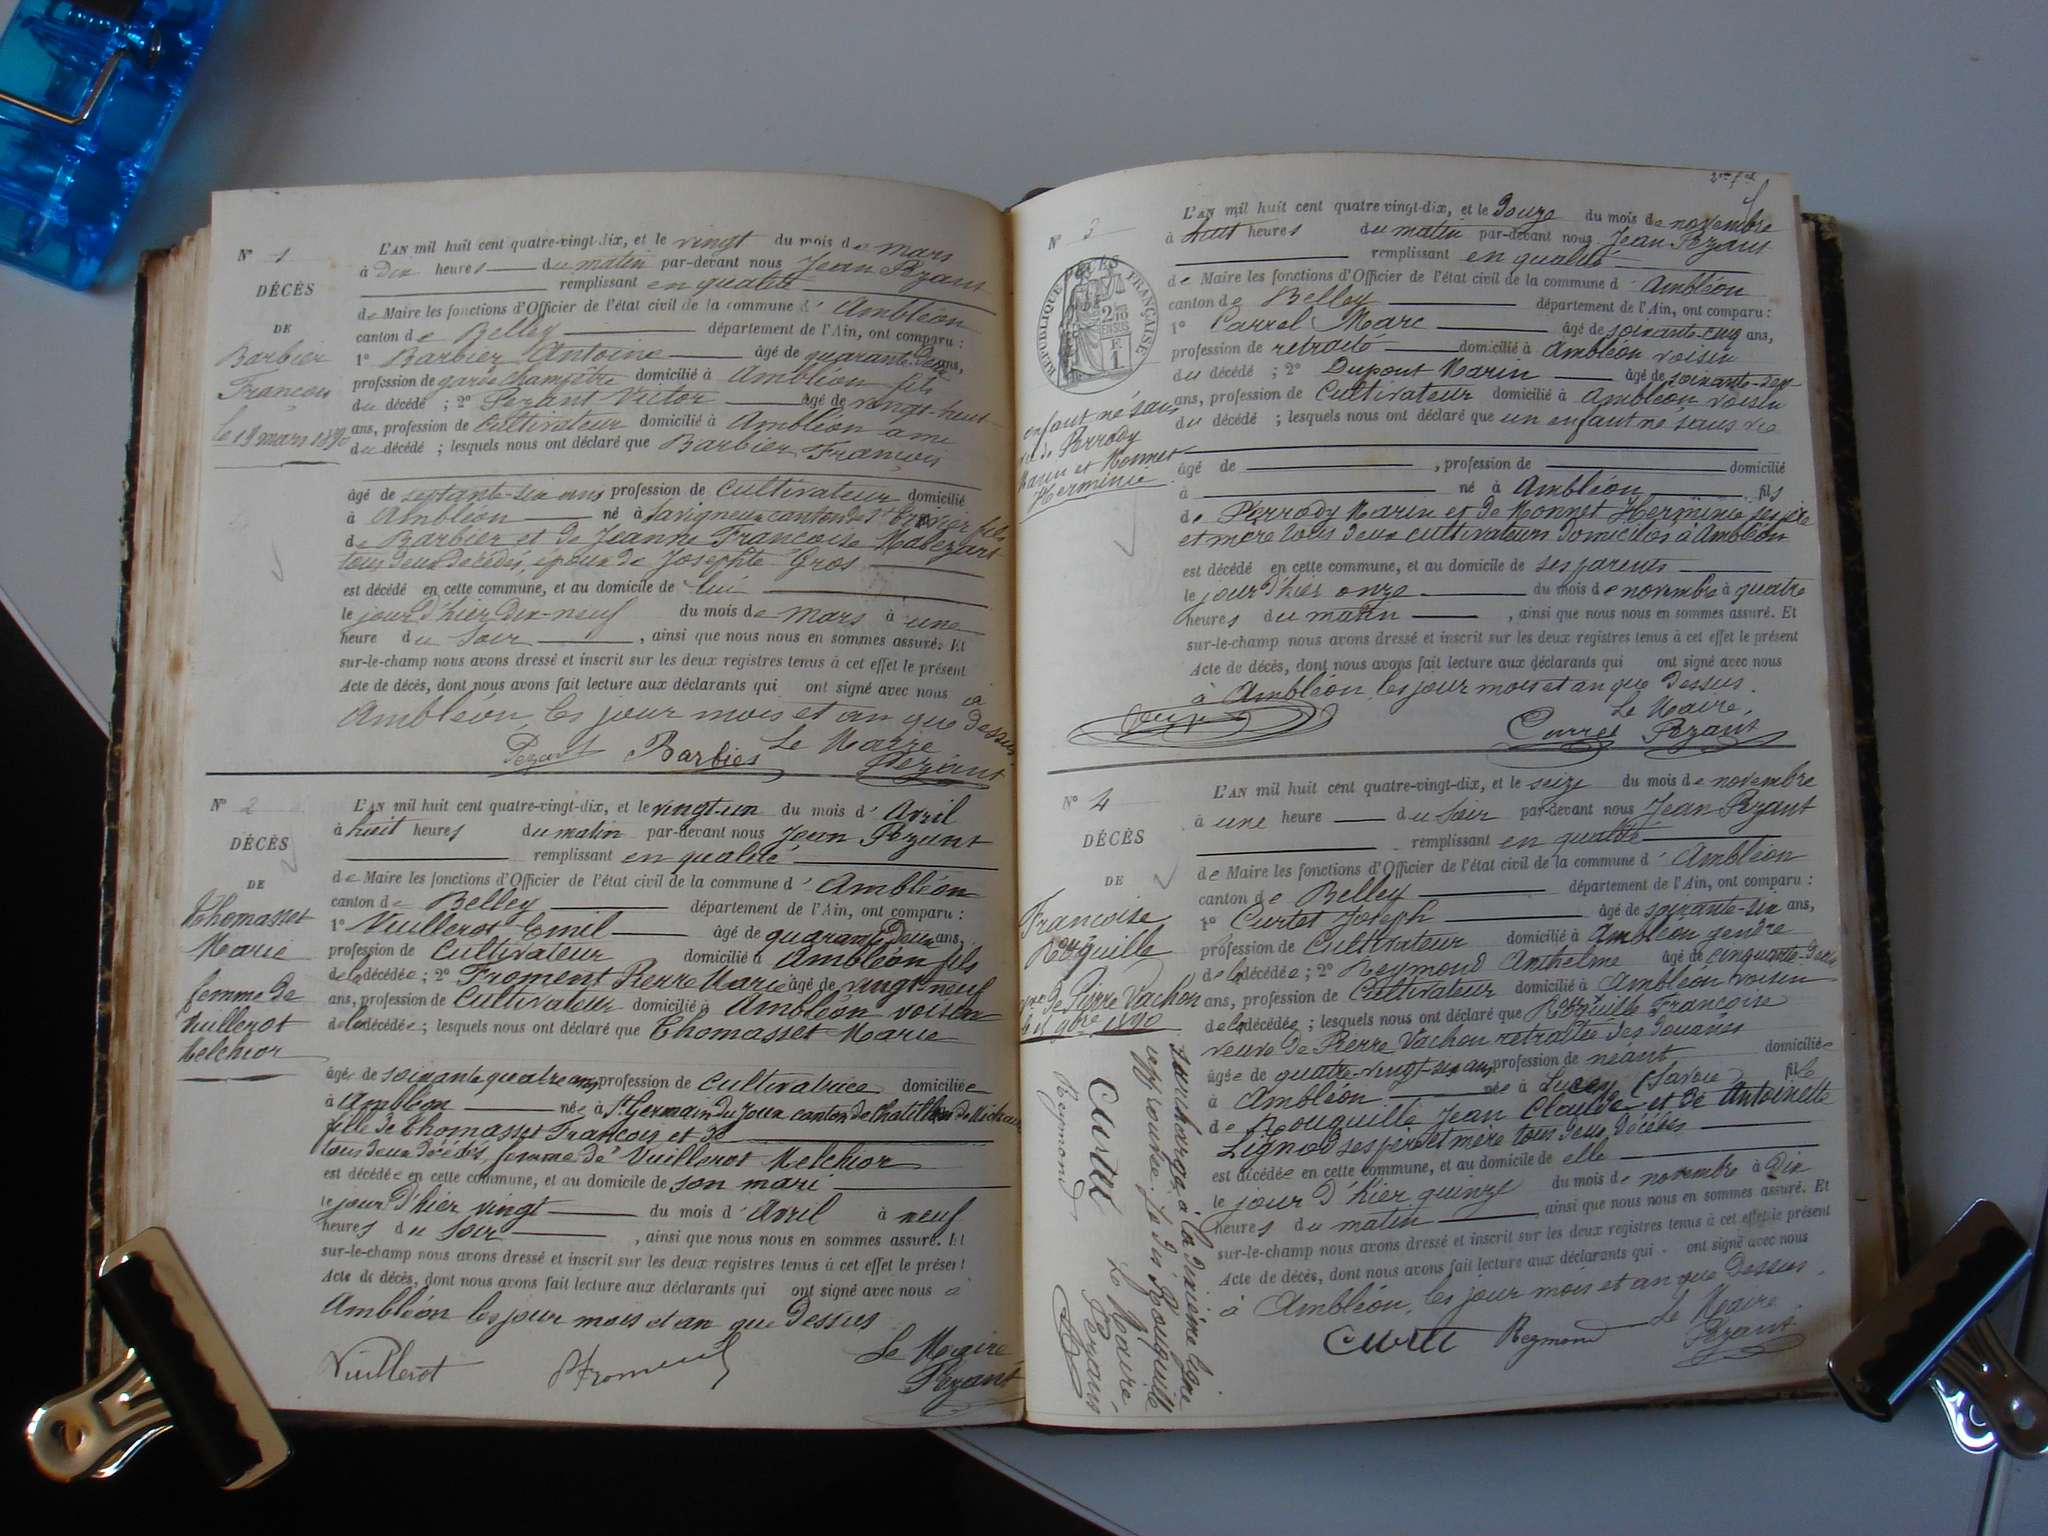 N° 1
DÉCÈS
DE
Barbier
François
le 19 mars 1890
L'AN mil huit cent quatre-vingt-dix, et le vingt du mois de mars
à dix heures du matin par-devant nous Jean Pezant
remplissant en qualité
de Maire les fonctions d'Officier de l'état civil de la commune d'Ambléon
canton de Belley département de l'Ain, ont comparu :
1° Barbier Antoine âgé de quarante-deux ans,
profession de garde champêtre domicilié à Ambléon fils
du décédé ; 2° Pezant Victor âgé de vingt-huit
ans, profession de cultivateur domicilié à Ambléon ami
du décédé ; lesquels nous ont déclaré que Barbier François
âgé de septante-six ans profession de cultivateur domicilié
à Ambléon né à Savigneux canton de St fils
de Barbier et de Jeanne Françoise
tous deux décédés, époux de Josephte Gros
est décédé en cette commune, et au domicile de lui
le jour d'hier dix-neuf du mois de mars à une
heure du soir , ainsi que nous nous en sommes assuré. Et
sur-le-champ nous avons dressé et inscrit sur les deux registres tenus à cet effet le présent
Acte de décès, dont nous avons fait lecture aux déclarants qui ont signé avec nous à
Ambléon, les jour mois et an que dessus.
Pezant Barbier Le Maire
Pezant
N° 2
DÉCÈS
DE
Thomasset
Marie
femme de
Vuillerot
Melchior
L'AN mil huit cent quatre-vingt-dix, et le vingt-un du mois d'Avril
à huit heures du matin par-devant nous Jean Pezant
remplissant en qualité
de Maire les fonctions d'Officier de l'état civil de la commune d'Ambléon
canton de Belley département de l'Ain, ont comparu :
1° Vuillerot Emil âgé de quarante deux ans,
profession de cultivateur domicilié à Ambléon fils
de la décédée ; 2° Froment Pierre Marie âgé de vingt-neuf
ans, profession de cultivateur domicilié à Ambléon voisin
de la décédée ; lesquels nous ont déclaré que Thomasset Marie
âgée de soixante quatre ans profession de cultivatrice domiciliée
à Ambléon née à St Germain du Joux canton de Chatillon de Michaille
fille de Thomasset François et de
tous deux décédés, femme de Vuillerot Melchior
est décédée en cette commune, et au domicile de son mari
le jour d'hier vingt du mois d'Avril à neuf
heures du soir , ainsi que nous nous en sommes assuré. Et
sur-le-champ nous avons dressé et inscrit sur les deux registres tenus à cet effet le présent
Acte de décès, dont nous avons fait lecture aux déclarants qui ont signé avec nous à
Ambléon les jour mois et an que dessus
Vuillerot Froment Le Maire
Pezant
N° 3
RÉPUBLIQUE FRANÇAISE
DÉCÈS
2/10 EN SUS
F. 1
enfant né sans
vie de Perrody
Marin et Monnet
Herminie
L'AN mil huit cent quatre-vingt-dix, et le douze du mois de novembre
à huit heures du matin par-devant nous Jean Pezant
remplissant en qualité
de Maire les fonctions d'Officier de l'état civil de la commune d'Ambléon
canton de Belley département de l'Ain, ont comparu :
1° Carrel Marc âgé de soixante-cinq ans,
profession de retraité domicilié à Ambléon voisin
du décédé ; 2° Dupont Marin âgé de soixante-sept
ans, profession de cultivateur domicilié à Ambléon voisin
du décédé ; lesquels nous ont déclaré que un enfant né sans vie
âgé de , profession de domicilié
à né à Ambléon fils
de Perrody Marin et de Monnet Herminie ses père
et mère tous deux cultivateurs domiciliés à Ambléon
est décédé en cette commune, et au domicile de ses parents
le jour d'hier onze du mois de novembre à quatre
heures du matin , ainsi que nous nous en sommes assuré. Et
sur-le-champ nous avons dressé et inscrit sur les deux registres tenus à cet effet le présent
Acte de décès, dont nous avons fait lecture aux déclarants qui ont signé avec nous
à Ambléon, les jour mois et an que dessus.
Le Maire,
Carrel Pezant
N° 4
DÉCÈS
DE
Françoise
Rouguille
de Pierre Vachon
le 15 9bre 1890
L'AN mil huit cent quatre-vingt-dix, et le seize du mois de novembre
à une heure du soir par-devant nous Jean Pezant
remplissant en qualité
de Maire les fonctions d'Officier de l'état civil de la commune d'Ambléon
canton de Belley département de l'Ain, ont comparu :
1° Curtet Joseph âgé de soixante-six ans,
profession de cultivateur domicilié à Ambléon gendre
de la décédée ; 2° Reymond Anthelme âgé de cinquante-deux
ans, profession de cultivateur domicilié à Ambléon voisin
de la décédée ; lesquels nous ont déclaré que Rouguille Françoise
veuve de Pierre Vachon retraitée des douanes
âgée de quatre-vingt-six ans profession de néant domiciliée
à Ambléon née à Lucey (Savoie) fille
de Rouguille Jean Claude et de Antoinette
Lignod ses père et mère tous deux décédés
est décédée en cette commune, et au domicile de elle
le jour d'hier quinze du mois de novembre à dix
heures du matin , ainsi que nous nous en sommes assuré. Et
sur-le-champ nous avons dressé et inscrit sur les deux registres tenus à cet effet le présent
Acte de décès, dont nous avons fait lecture aux déclarants qui ont signé avec nous
à Ambléon, les jour mois et an que dessus.
Le Maire
Curtet Reymond Pezant
surcharge à la dixième ligne
approuvée. Le dis Rouguille
Curtet Le Maire
Reymond Pezant